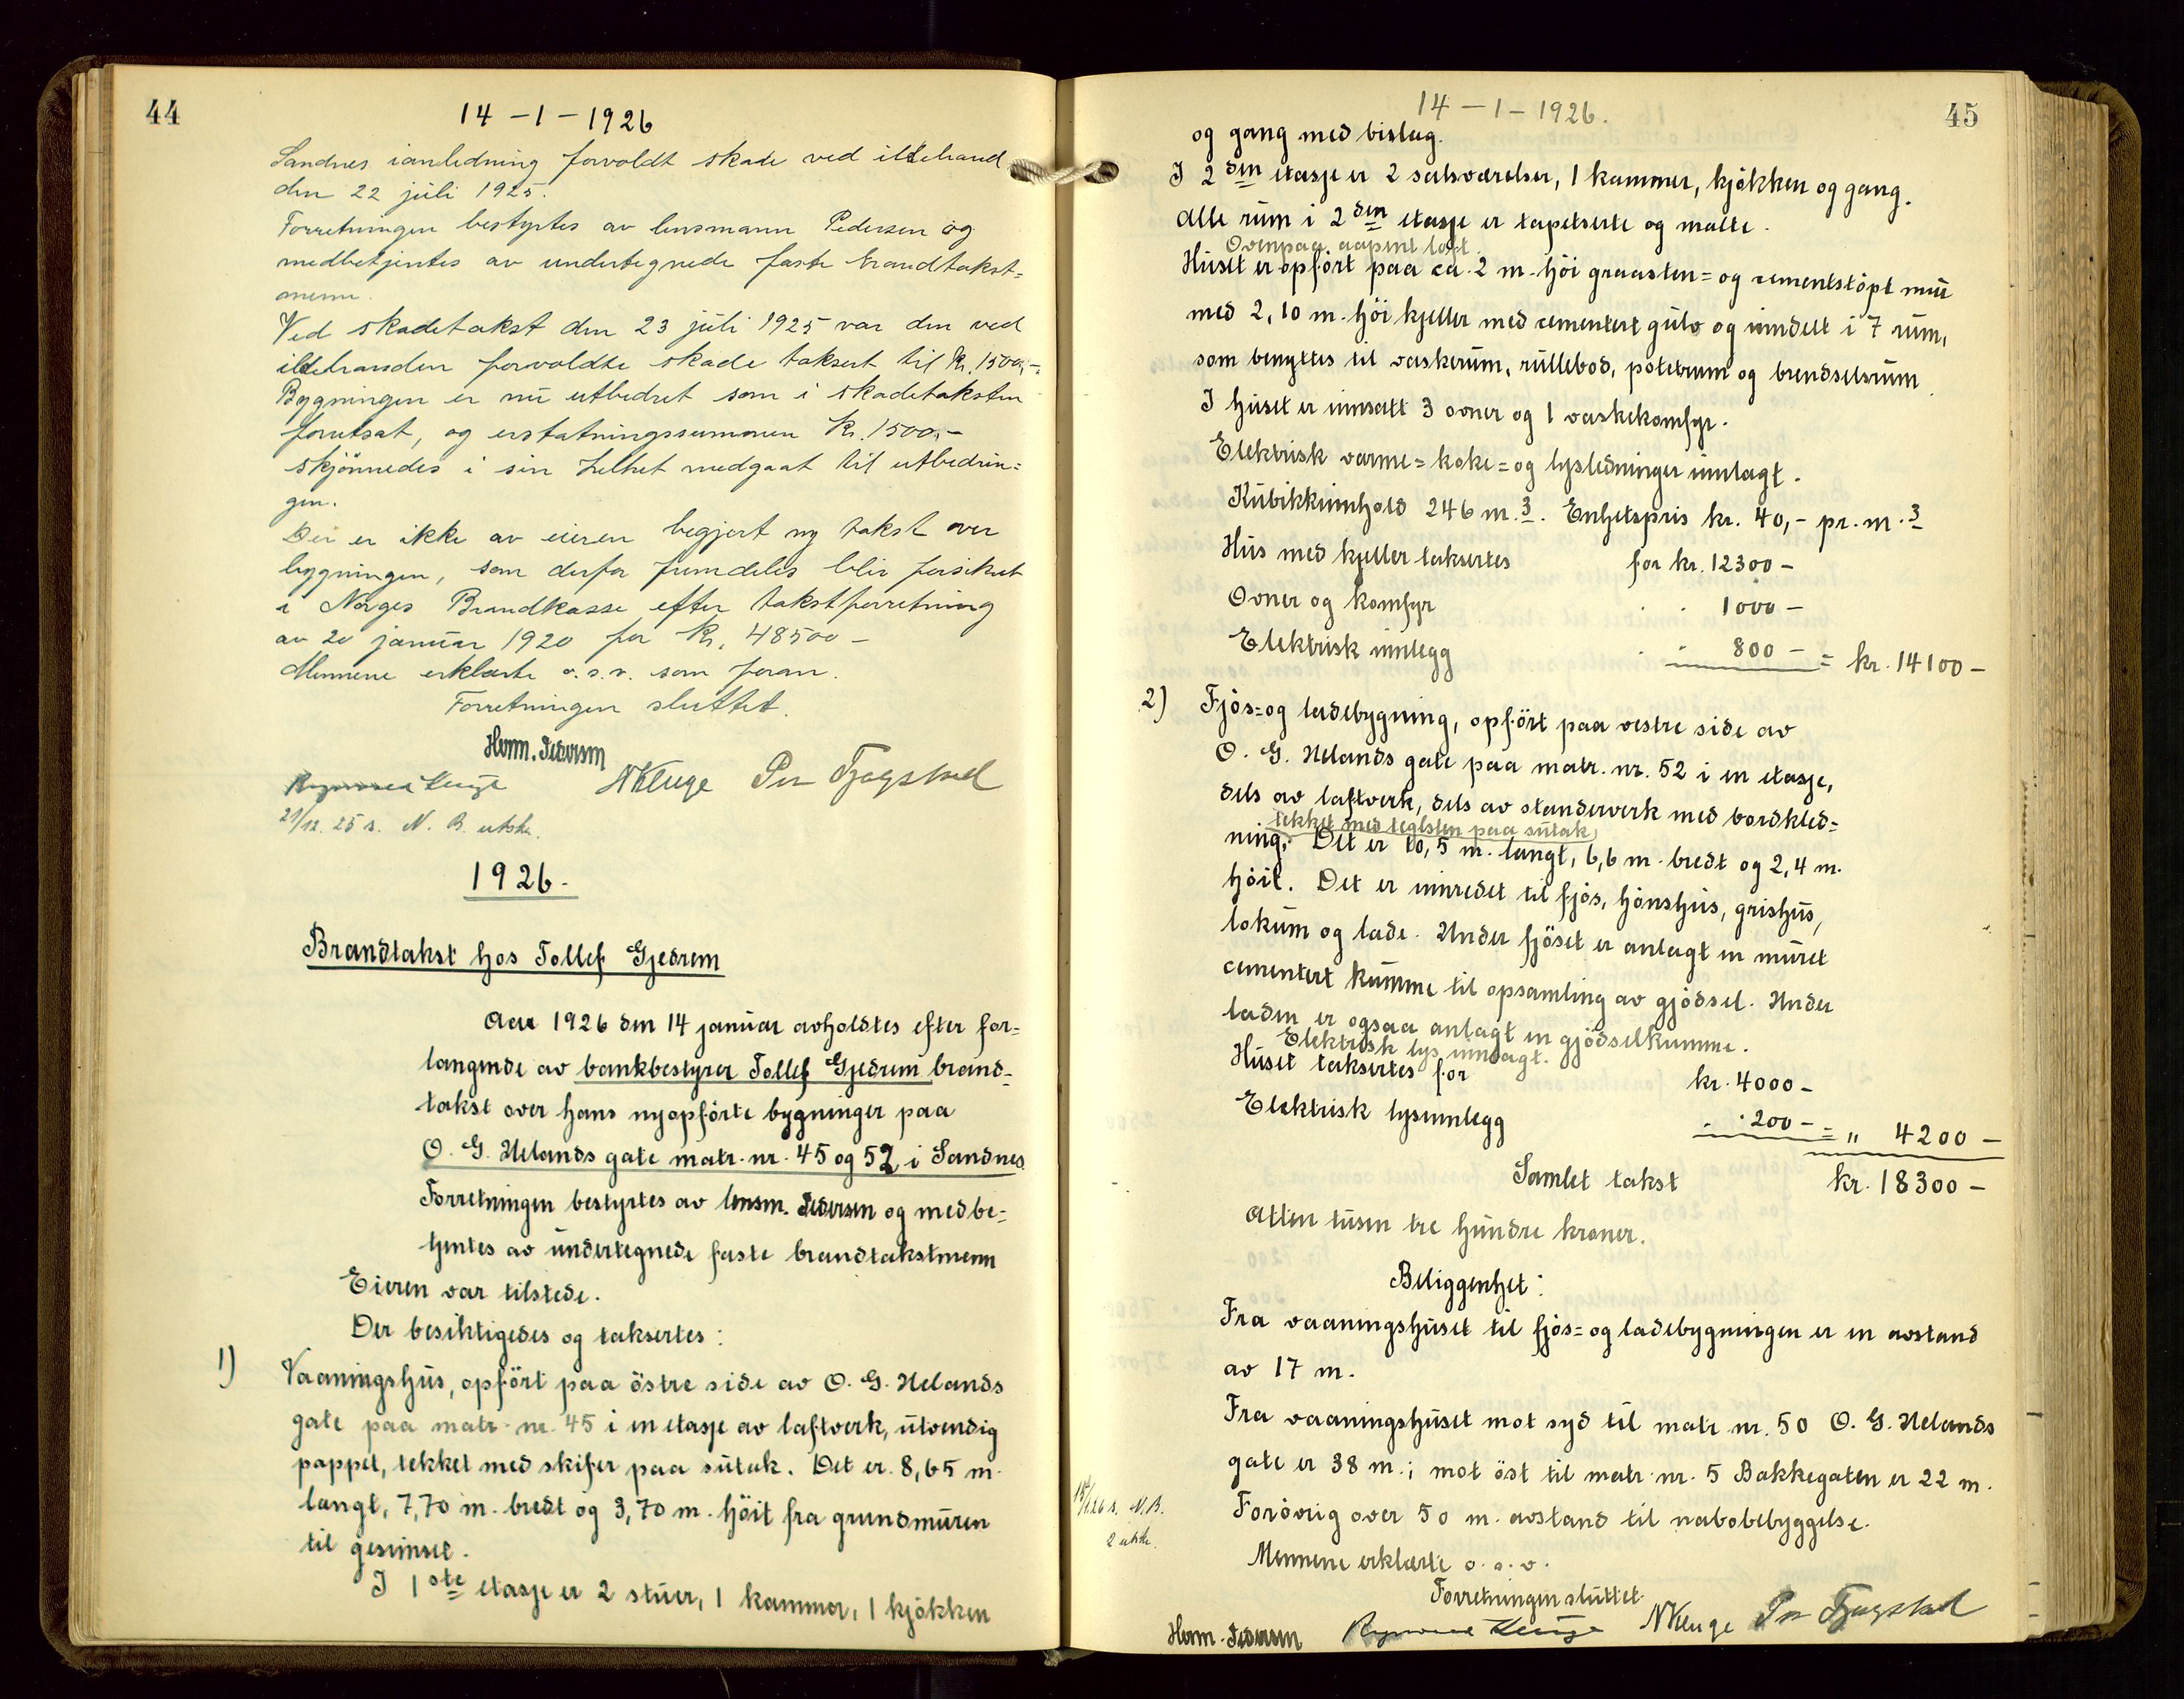 44
14-1-1926
Sandnes i anledning forvoldt skade ved ildebrand
den 22 juli 1925.
Forretningen bestyrtes av lensmann Pedersen og
medbetjentes av undertegnede faste brandtakst=
menn.
Ved skadetakst den 23 juli 1925 var den ved
ildebranden forvoldte skade taksert til kr. 1500,-.
Bygningen er nu utbedret som i skadetaksten
forutsat, og erstatningssummen kr. 1500,-
skjønnedes i sin helhet medgaat til utbedrin=
gen.
Der er ikke av eieren begjert ny takst over
bygningen, som derfor fremdeles blir forsikret
i Norges Brandkasse efter takstforretning
av 20 januar 1920 for kr. 48500-
Mennene erklærte o.s.v. som foran.
Forretningen sluttet.
Herm. Pedersen
N Kluge Per Tjagstad
21/12. 25 s. N. B. utskr.
1926.
Brandtakst hos Tollef Gjedrem
Aar 1926 den 14 januar avholdtes efter for=
langende av bankbestyrer Tollef Gjedrem brand=
takst over hans nyopførte bygninger paa
O. G. Uelands gate matr. nr. 45 og 52 i Sandnes.
Forretningen bestyrtes av lensm. Pedersen og medbe=
tjentes av undertegnede faste brandtakstmenn
Eieren var tilstede.
Der besiktigedes og taksertes:
1) Vaaningshus, opført paa østre side av O. G. Uelands
gate paa matr. nr. 45 i en etasje av laftverk, utvendig
pappet, tekket med skifer paa sutak. Det er 8,65 m.
langt, 7,70 m. bredt og 3,70 m. høit fra grundmuren
til gesimset.
I 1ste etasje er 2 stuer, 1 kammer, 1 kjøkken
45
14-1-1926.
og gang med bislag.
I 2den etasje er 2 soloværelser, 1 kammer, kjøkken og gang.
Alle rum i 2den etasje er tapetserte og malte.
Ovenpaa aapent loft.
Huset er opført paa ca. 2 m. høi graasten= og cementstøpt mur
med 2,10 m. høi kjeller med cementert gulv og inndelt i 7 rum,
som benyttes til vaskerum, rullebod, potetrum og brendselsrum
I huset er innsatt 3 ovner og 1 vaskekomfyr.
Elektrisk varme= koke= og lysledninger innlagt.
Kubikkinnhold 246 m.3. Enhetspris kr. 40,- pr. m.3
Hus med kjeller taksertes for kr. 12300-
Ovner og komfyr " " 1000-
Elektrisk innlegg " " 800- = kr. 14100-
2) Fjøs= og ladebygning, opført paa vestre side av
O. G. Uelands gate paa matr. nr. 52 i en etasje,
dels av laftverk, dels av standerverk med bordkled=
tekket med teglsten paa sutak
ning. Det er 10,5 m. langt, 6,6 m. bredt og 2,4 m.
høit. Det er innredet til fjøs, hønshus, grishus,
lokum og lade. Under fjøset er anlagt en muret
cementert kumme til opsamling av gjødsel. Under
laden er ogsaa anlagt en gjødselkumme.
Elektrisk lys innlagt.
Huset taksertes for kr. 4000-
Elektrisk lysinnlegg " 200- = " 4200-
Samlet takst kr. 18300-
Atten tusen tre hundre kroner.
Beliggenhet:
Fra vaaningshuset til fjøs= og ladebygningen er en avstand
av 17 m.
Fra vaaningshuset mot syd til matr. nr. 50 O. G. Uelands
gate er 38 m.; mot øst til matr. nr. 5 Bakkegaten er 22 m.
Forøvrig over 50 m. avstand til nabobebyggelse.
N.B.
2 utskr.
Mennene erklærte o.s.v.
Forretningen sluttet
Herm. Pedersen N Kluge Per Tjagstad